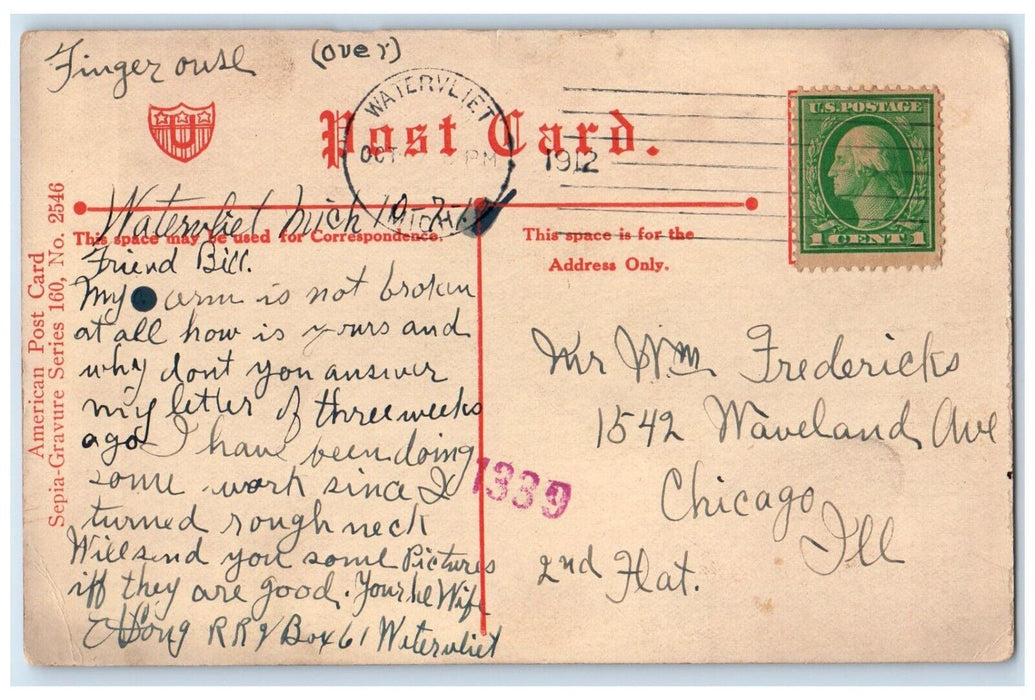 (over)
Post Card.
WATERVLIET
OCT PM
1912
MICH.
U.S. POSTAGE
1 CENT 1
American Post Card
Sepia-Gravure Series 160, No. 2546
Watervliet Mich 10-7-
This space may be used for Correspondence.
This space is for the
Address Only.
Friend Bill.
My arm is not broken
at all how is yours and
why dont you answer
my letter of three weeks
ago I have been doing
some work since I
turned rough neck
Will send you some Pictures
iff they are good. Wife
RR Box 61 Watervliet
1339
Mr Wm Fredericks
1542 Waveland Ave
Chicago
Ill
2nd Flat.